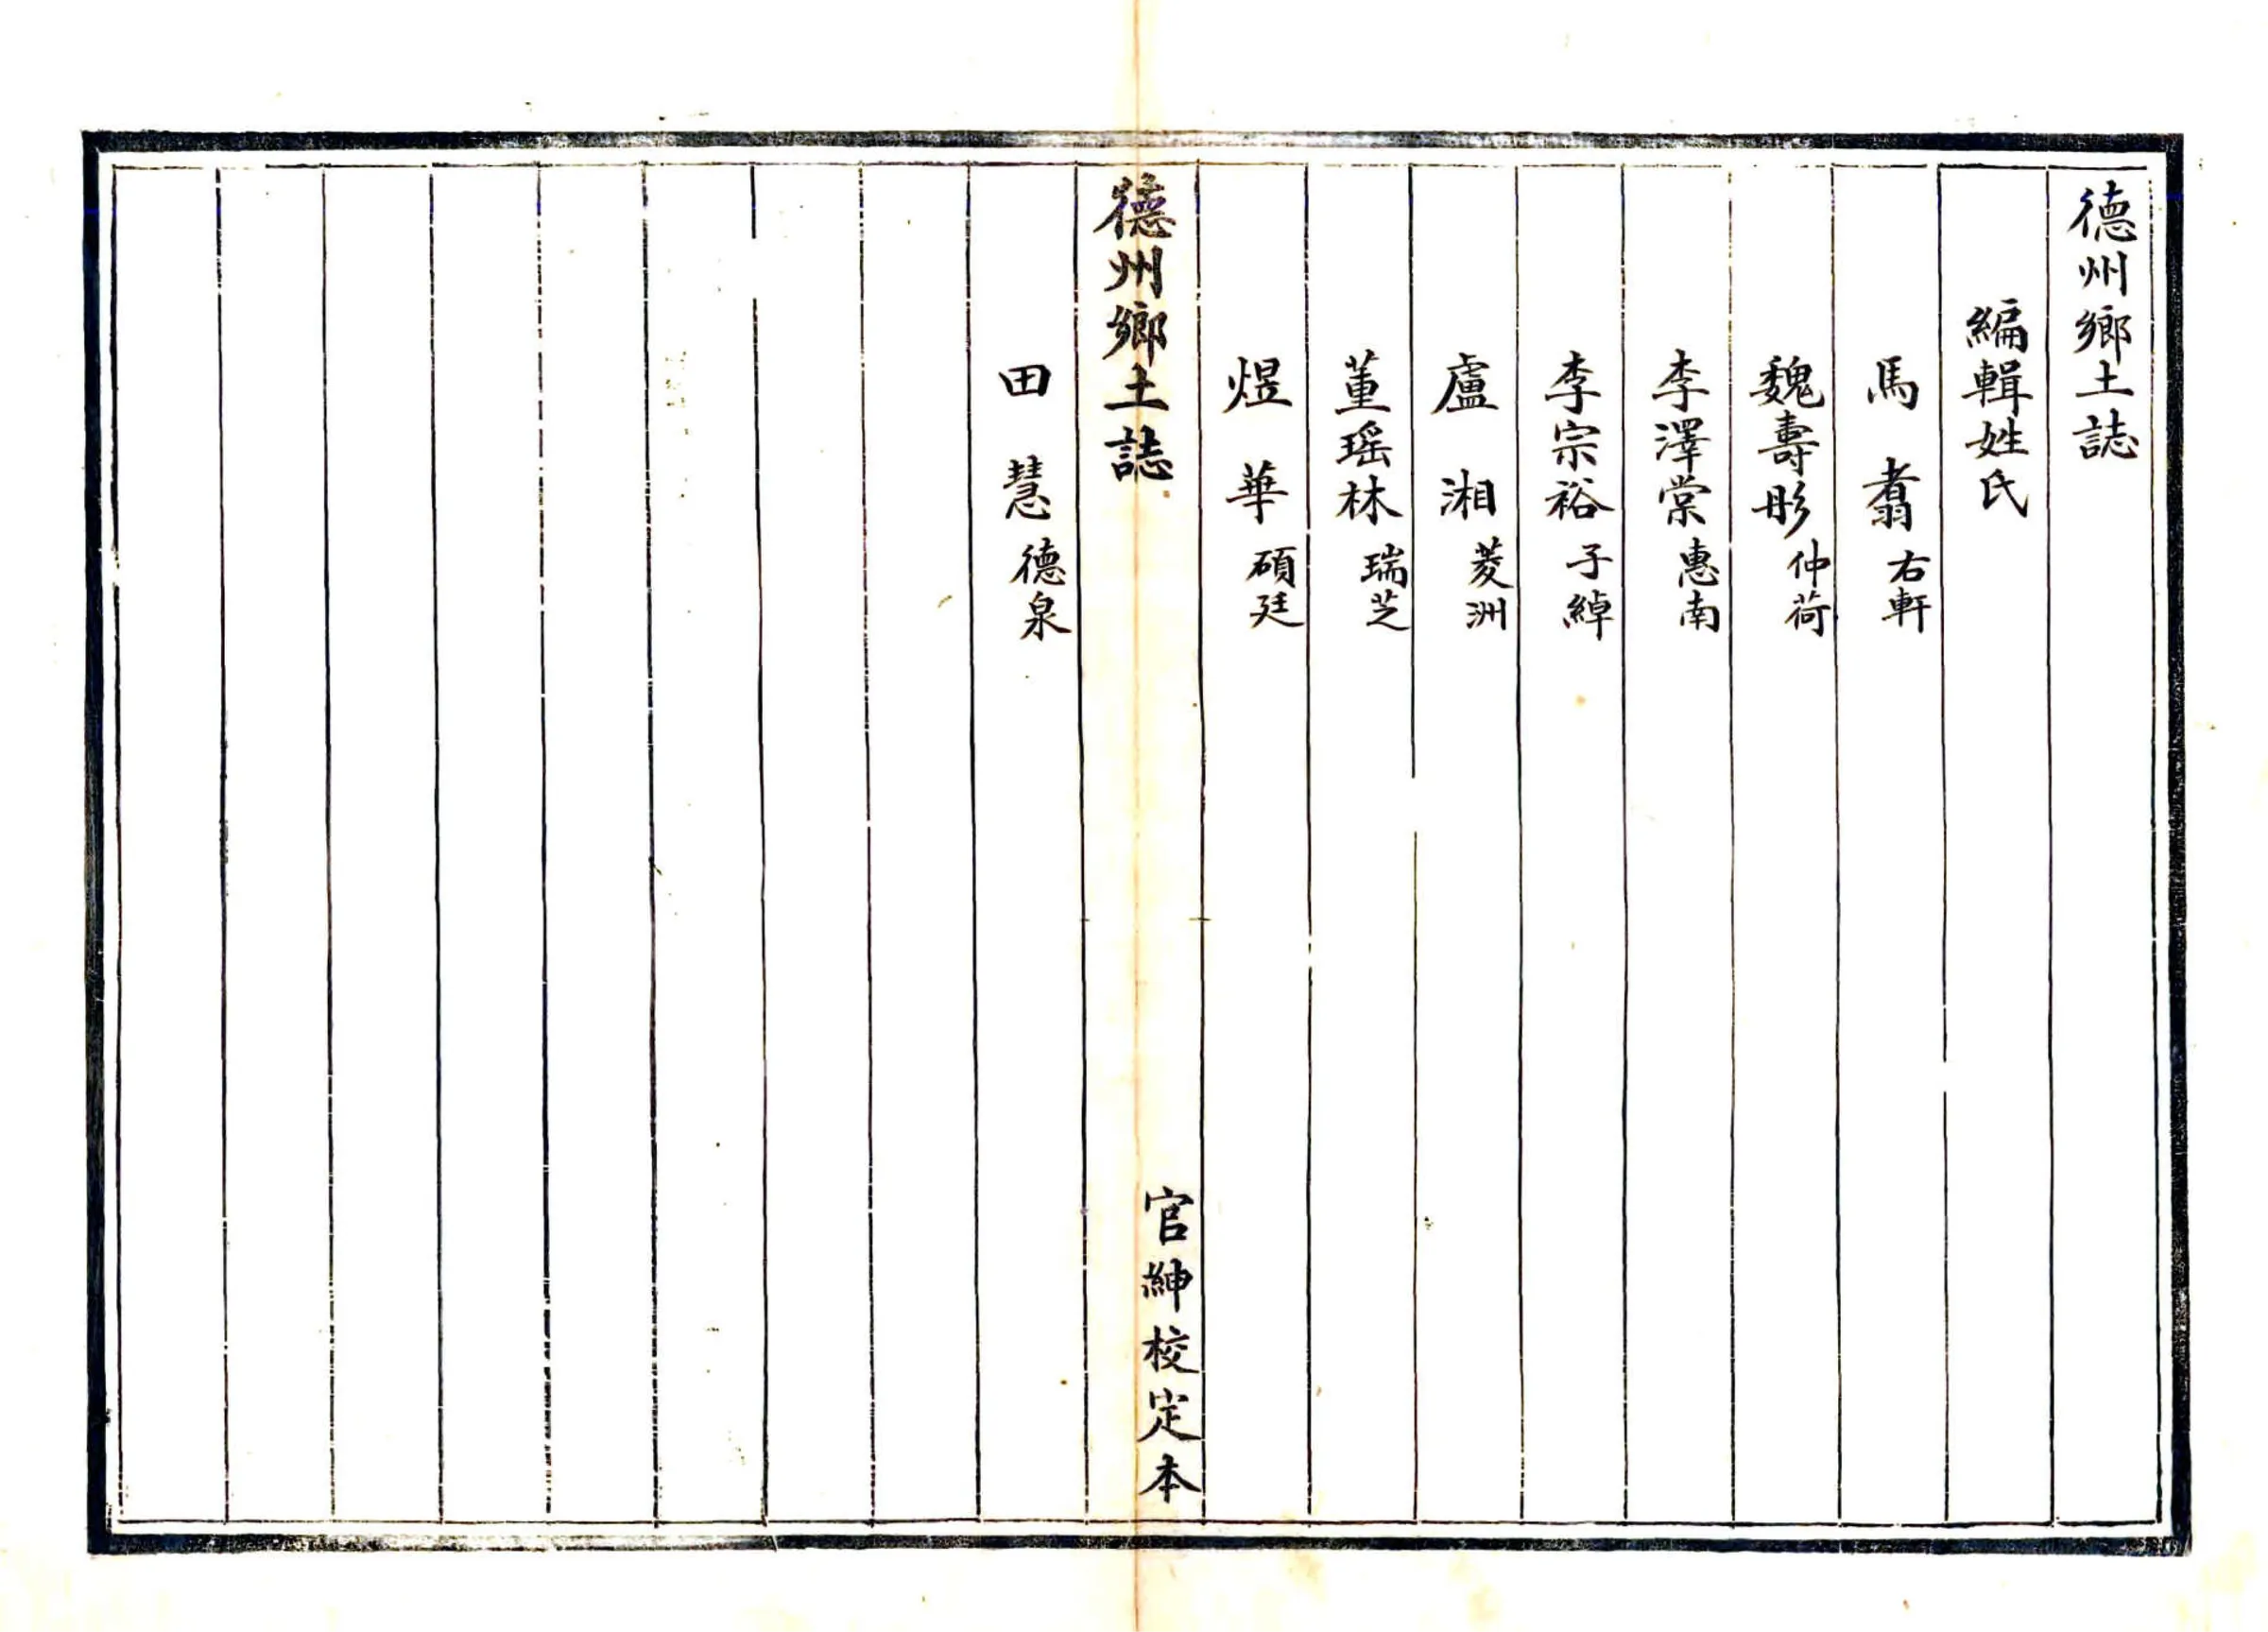 德州鄉土誌
編輯姓氏
馬翥 右軒
魏壽彤 仲荷
李澤棠 惠南
李宗裕 子綽
盧湘 菱洲
董瑶林 瑞芝
煜華 碩廷
德州鄉土誌 官紳校定本
田慧 德泉